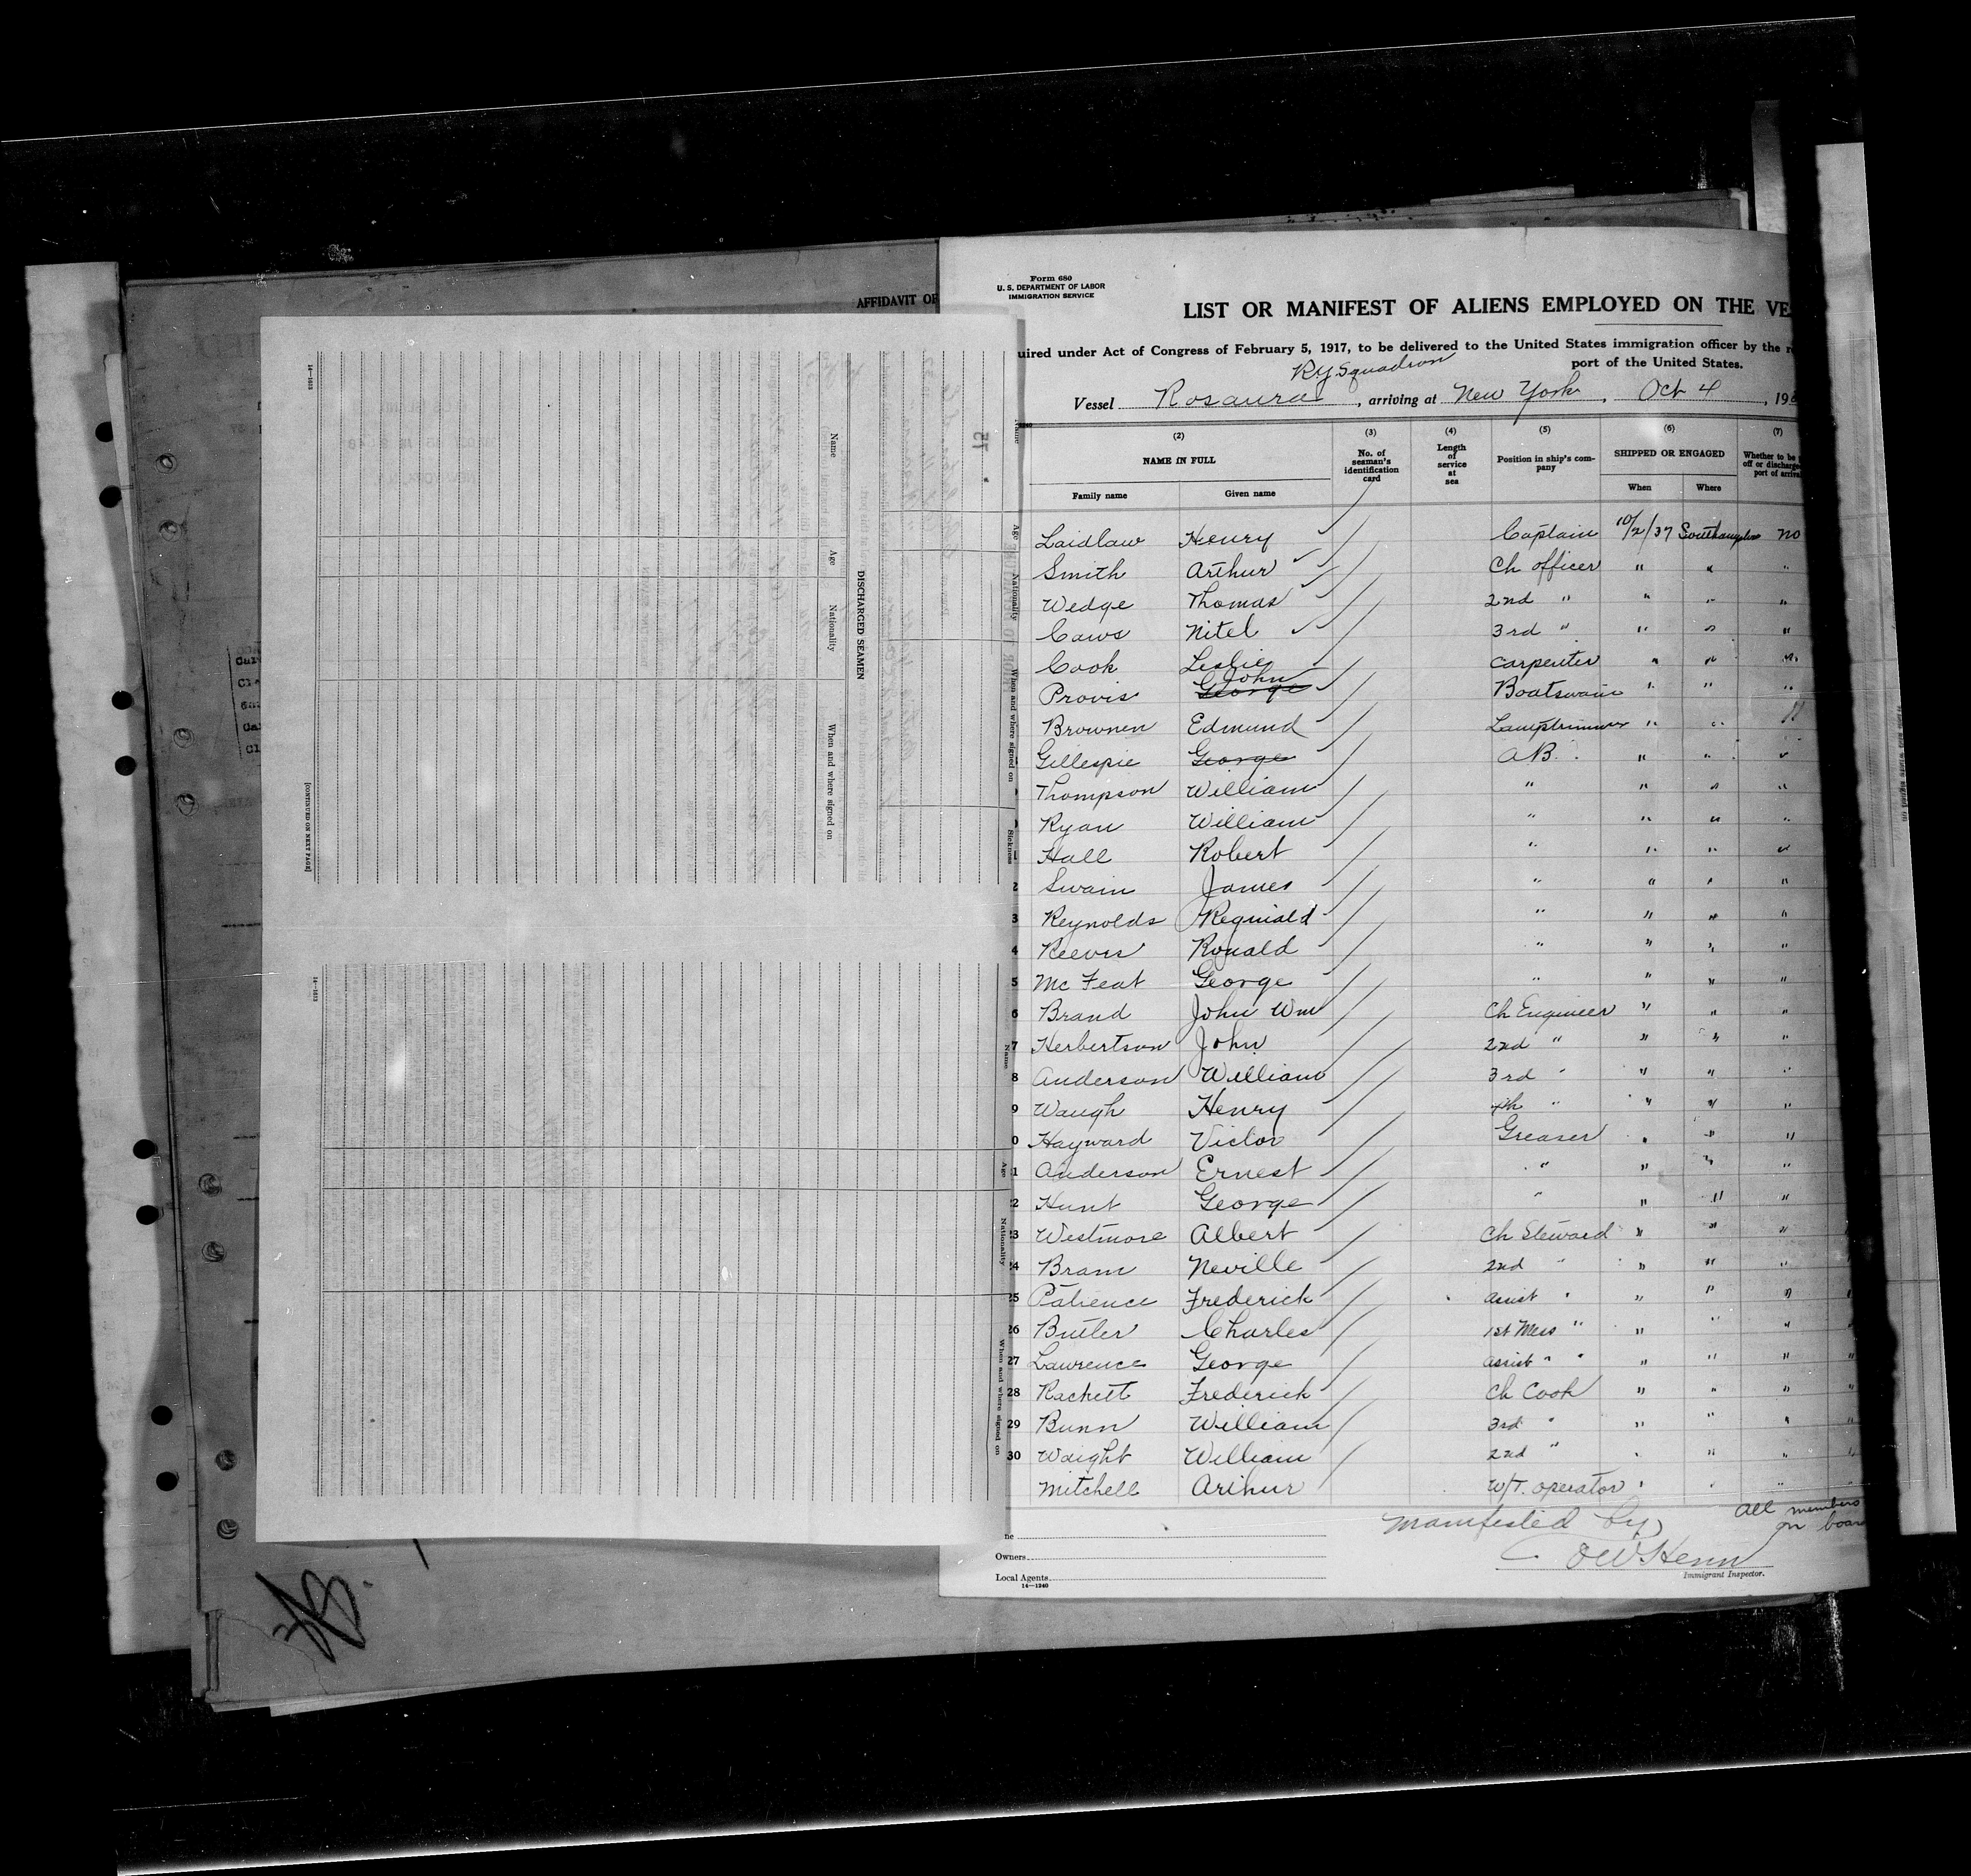 AFFIDAVIT OF
Form 680
U. S. DEPARTMENT OF LABOR
IMMIGRATION SERVICE
LIST OR MANIFEST OF ALIENS EMPLOYED ON THE VE
uired under Act of Congress of February 5, 1917, to be delivered to the United States immigration officer by the
port of the United States.
RY Squadron
Vessel Rosaura, arriving at New York, Oct 4, 19
(2) (3) (4) (5) (6) (7)
NAME IN FULL No. of seaman's identification card Length of service at sea Position in ship's company SHIPPED OR ENGAGED Whether to be off or discharge port of arriva
Family name Given name When Where
Laidlaw Henry Captain 10/2/37 Southampton no
Smith Arthur Ch officer " " "
Wedge Thomas 2nd " " " "
Caws Nitel 3rd " " " "
Cook Leslie Carpenter " " "
John
Provis George Boatswain " " "
Brownen Edmund Lamptrimmer " " "
Gillespie George A.B. " " "
Thompson William " " " "
Ryan William " " " "
Hall Robert " " " "
2 Swain James " " " "
3 Reynolds Reginald " " " "
4 Reeves Ronald " " " "
5 Mc Feat George " " " "
6 Brand John Wm Ch Engineer " " "
7 Herbertson John 2nd " " " "
8 Anderson William 3rd " " " "
9 Waugh Henry 4th " " " "
0 Hayward Victor Greaser " " "
21 Anderson Ernest " " " "
22 Hunt George " " " "
23 Westmore Albert Ch Steward " " "
24 Bram Neville 2nd " " " "
25 Patience Frederick Assist " " " "
26 Butler Charles 1st Mess " " " "
27 Lawrence George Assist " " " " "
28 Rackett Frederick Ch Cook " " "
29 Bunn William 3rd " " " "
30 Waight William 2nd " " " "
Mitchell Arthur W/T. operator " " "
Manifested by
All members
on boar
OW Henn
Immigrant Inspector.
ne
Owners
Local Agents
14—1240
DISCHARGED SEAMEN
Name Age Nationality When and where signed on
Name Age Nationality When and where signed on Sickness
Name Age Nationality When and where signed on
[CONTINUED ON NEXT PAGE]
14—1613
14—1613
75